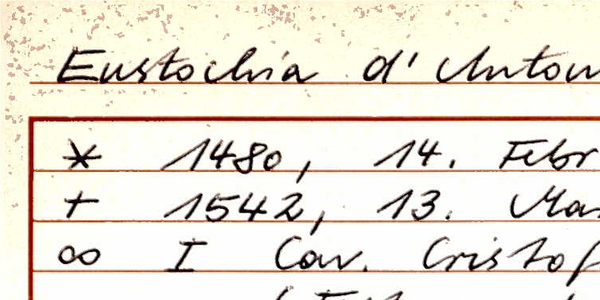 Eustochia d'Anton
* 1480, 14. Febr
+ 1542, 13. Ma
∞ I Cav. Cristof